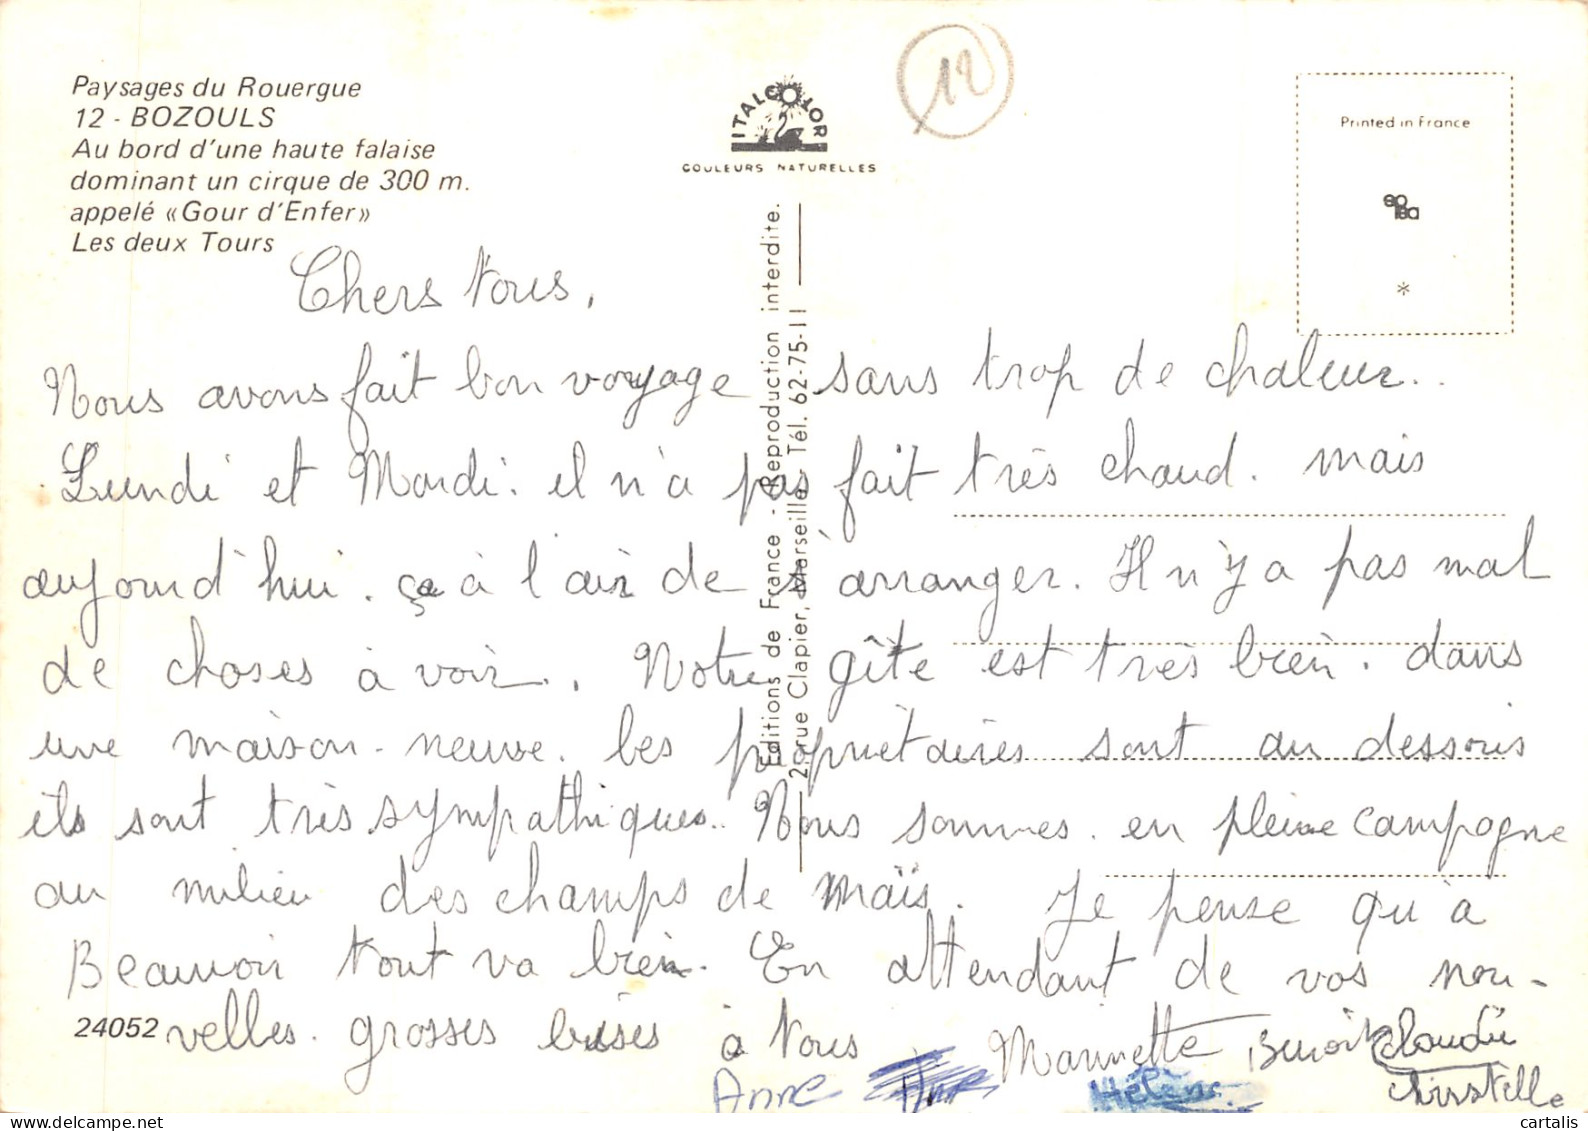 Paysages du Rouergue
12 - BOZOULS
Au bord d'une haute falaise
dominant un cirque de 300 m.
appelé «Gour d'Enfer»
Les deux Tours
ITALCOLOR
COULEURS NATURELLES
12
Printed in France
*
Editions de France - Reproduction interdite.
2, rue Clapier, Marseille - Tél. 62-75-11
Chers Tous,
Nous avons fait bon voyage sans trop de chaleur..
Lundi et Mardi. il n'a pas fait très chaud. mais
aujourd'hui. ça à l'air de s'arranger. Il n'y a pas mal
de choses à voir.. Notre gîte est très bien. dans
une maison neuve. les propriétaires sont au dessous
ils sont très sympathiques.. Nous sommes en pleine campagne
au milieu des champs de maïs. Je pense qu'à
Beauvoir tout va bien. En attendant de vos nou-
velles. grosses bises à Tous
24052
Marinette Benoit Claudie
Anne Hélène Christelle
cartalis
delcampe.net